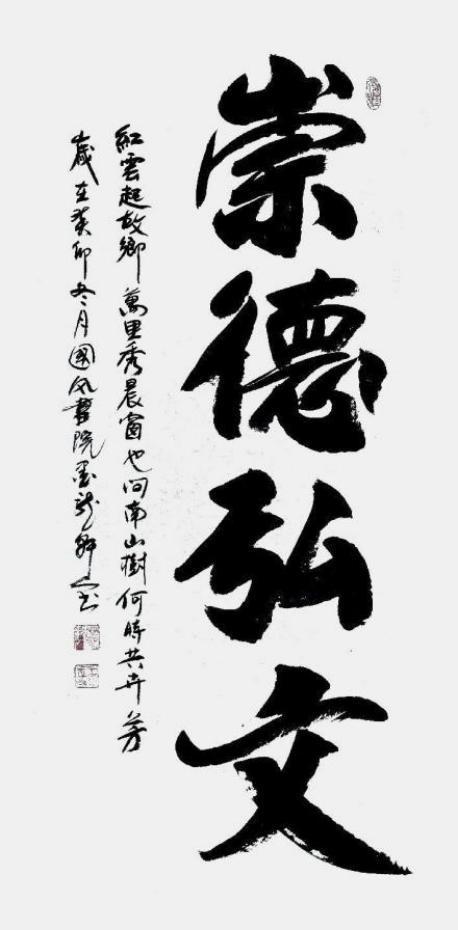 崇德弘文
紅雲起故鄉萬里秀晨窗也问南山樹何時共卉芳
歲在癸卯冬月國风書院墨龙軒